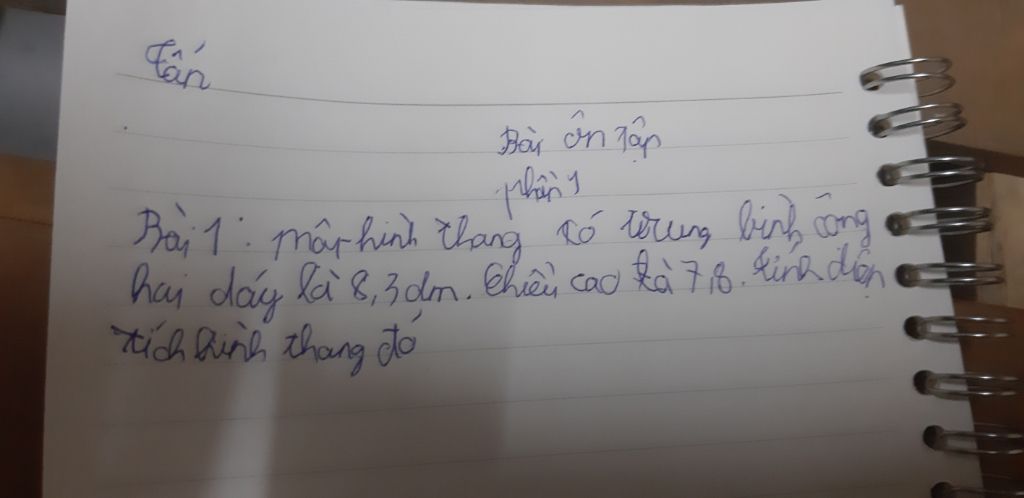 Tấn
Bài ôn tập
phần 1
Bài 1: một hình thang có trung bình cộng
hai dáy là 8,3dm. Chiều cao là 7,8. tính diện
tích hình thang đó